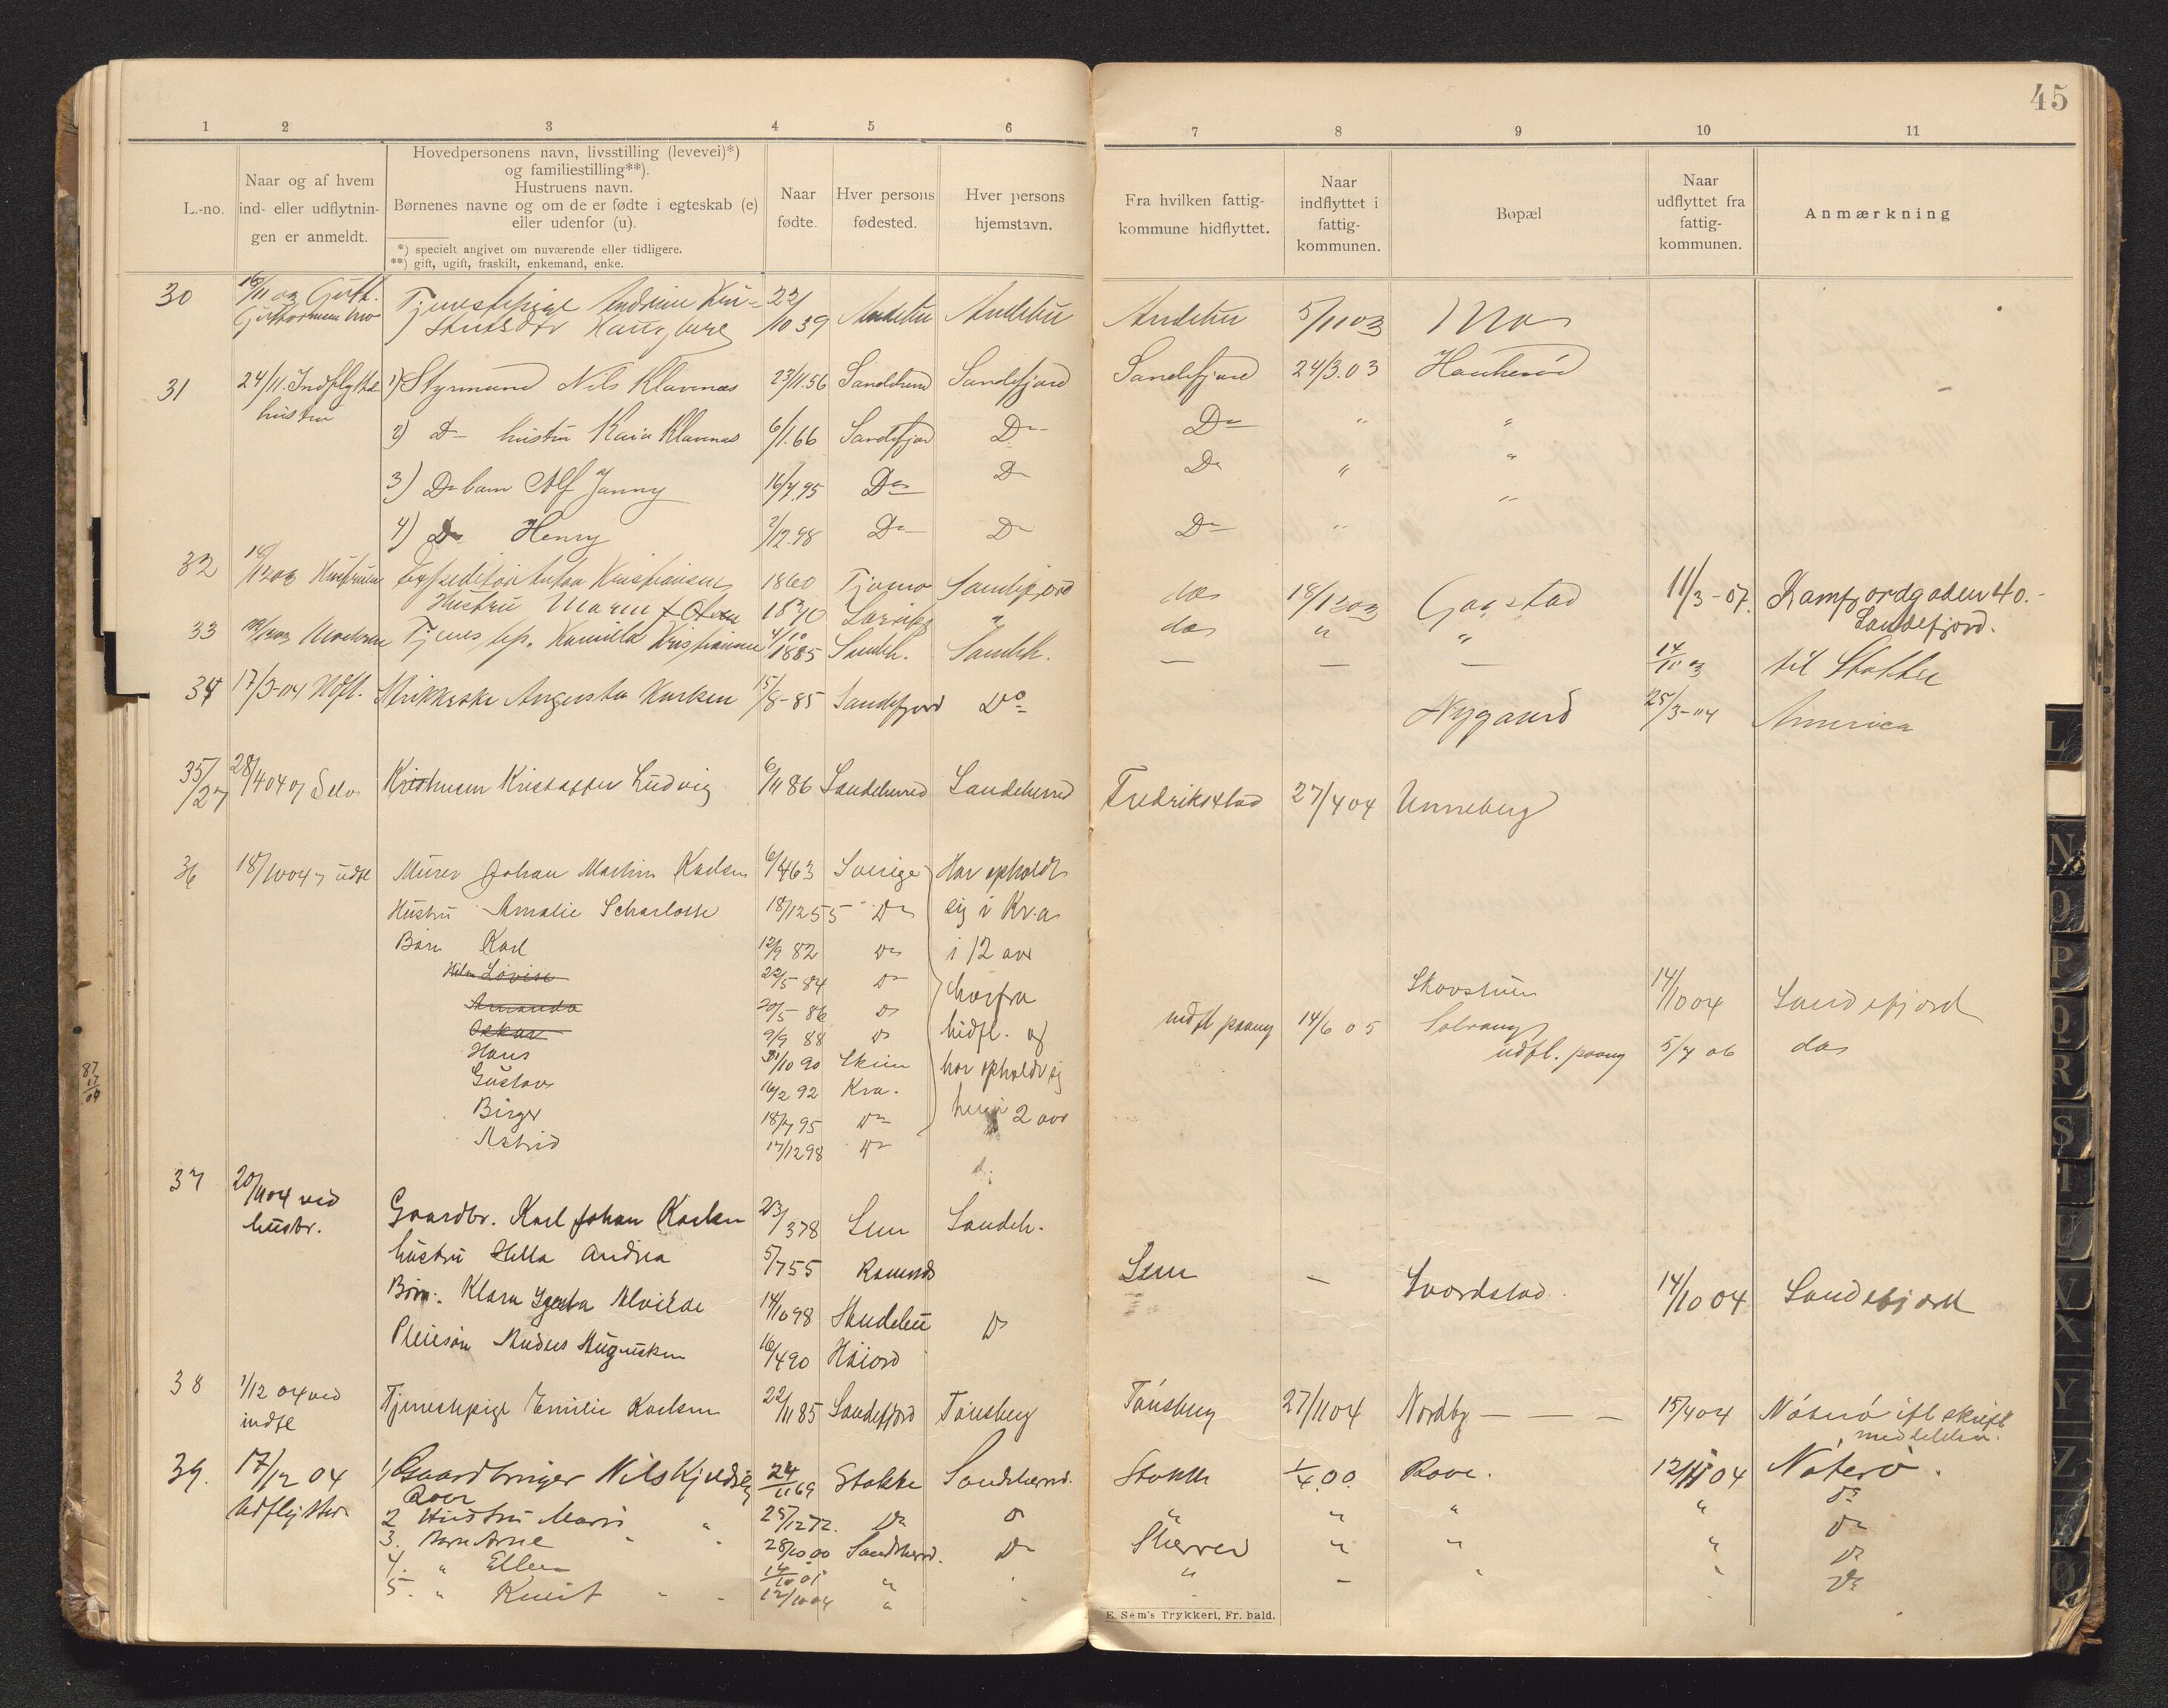 45
1 2 3 4 5 6 7 8 9 10 11
L.-no.
Naar og af hvem
ind- eller udflytnin-
gen er anmeldt.
Hovedpersonens navn, livsstilling (levevei)*)
og familiestilling**).
Hustruens navn.
Børnenes navne og om de er fødte i egteskab (e)
eller udenfor (u).
*) specielt angivet om nuværende eller tidligere.
**) gift, ugift, fraskilt, enkemand, enke.
Naar
fødte.
Hver persons
fødested.
Hver persons
hjemstavn.
Fra hvilken fattig-
kommune hidflyttet.
Naar
indflyttet i
fattig-
kommunen.
Bopæl
Naar
udflyttet fra
fattig-
kommunen.
Anmærkning
30 Tjenestepige Andrine 22/10 39 Andebu Andebu Andebu 5/11 03 Mo
31 24/11. Indflyttet 1) Styrmand Nils Klavenæs 23/11.56 Sandeherred Sandefjord Sandefjord 24/3.03 Haukerød
hustru
2) Do hustru Kaia Klavenæs 6/1.66 Sandefjord Do Do " "
3) Do barn Alf Janny 16/7.95 Do Do Do " "
4) Do Henry 2/12.98 Do Do Do " "
32 18/12 03 Hustruen Expeditør Anton Kristiansen 1860 Tjømø Sandefjord do 18/12 03 Gogstad 11/3-07. Kamfjordgaden 40.-
Hustru Maren f. Olsen Larvik " do " " Sandefjord.
33 Moderen Tjenestep. Kamilla Kristiansen 4/10 1885 Sandeh. Sandeh. — — — 14/11 03 til Stokke
34 17/3-04 Udfl. Strikkerske Augusta Karlsen 15/8-85 Sandefjord Do Nygaard 25/3-04 America
35/27 28/4 04 af Selv Kristensen Kristoffer Ludvig 6/11 86 Sandeherred Sandeherred Fredrikstad 27/4 04 Unneberg
36 18/10 04 udfl Murer Johan Martin Karlsen 6/4 63 Sverige Har opholdt
Hustru Amalie Scharlotte 18/12 55 Do sig i Kr.a
Børn Karl 12/9 82 Do i 12 aar
Lovise 22/5 84 Do herfra Skovstuen 14/10 04 Sandefjord
Amanda 20/5 86 Do
Oskar 9/9 88 Do hidfl. og indfl paany 14/6 05 Solvang
Hans 31/10 90 Skien har opholdt sig udfl. paany 5/7 06 do
Gustav 16/2 92 Kra. her i 2 aar
Birger 18/7 95 Do
Astrid 17/12 98 Do
87
17
04
37 20/10 04 ved Gaardbr. Karl Johan Karlsen 23/3 78 Sem Sandeh.
hustr. hustru Hella Andrea 5/7 55 Ramnes Sem — Svordstad 14/10 04 Sandefjord
Børn: Klara Alvilde 14/10 98 Skudelu Do
Pleiesøn Anders Augustsen 16/4 90 Høiord
38 1/12 04 ved Tjenestepige Emilie Karlsen 22/11 85 Sandefjord Tønsberg Tønsberg 27/11 04 Nordby — — — 15/4 04 Nøterø ifl skriftl
indfl meddelelse.
39. 17/12 04 1) Gaardbruger Nils Kjeldsen 24/11 69 Stokke Sandeherred. Stokke 1/4 00. Rove. 12/11 04 Nøterø.
Udflytter Rove
2 Hustru Marie " 25/12 72. Do Do " " " " Do
3. Barn Arne " " 28/10 00 Sandeherred. Do Sherred " " " Do
4. " Ellen 14/10 01 " " " - Do
5. " Knut 12/10 04 " Do
E. Sem's Trykkeri, Fr. hald.
L N O P Q R S T V X Y Z Æ Ø